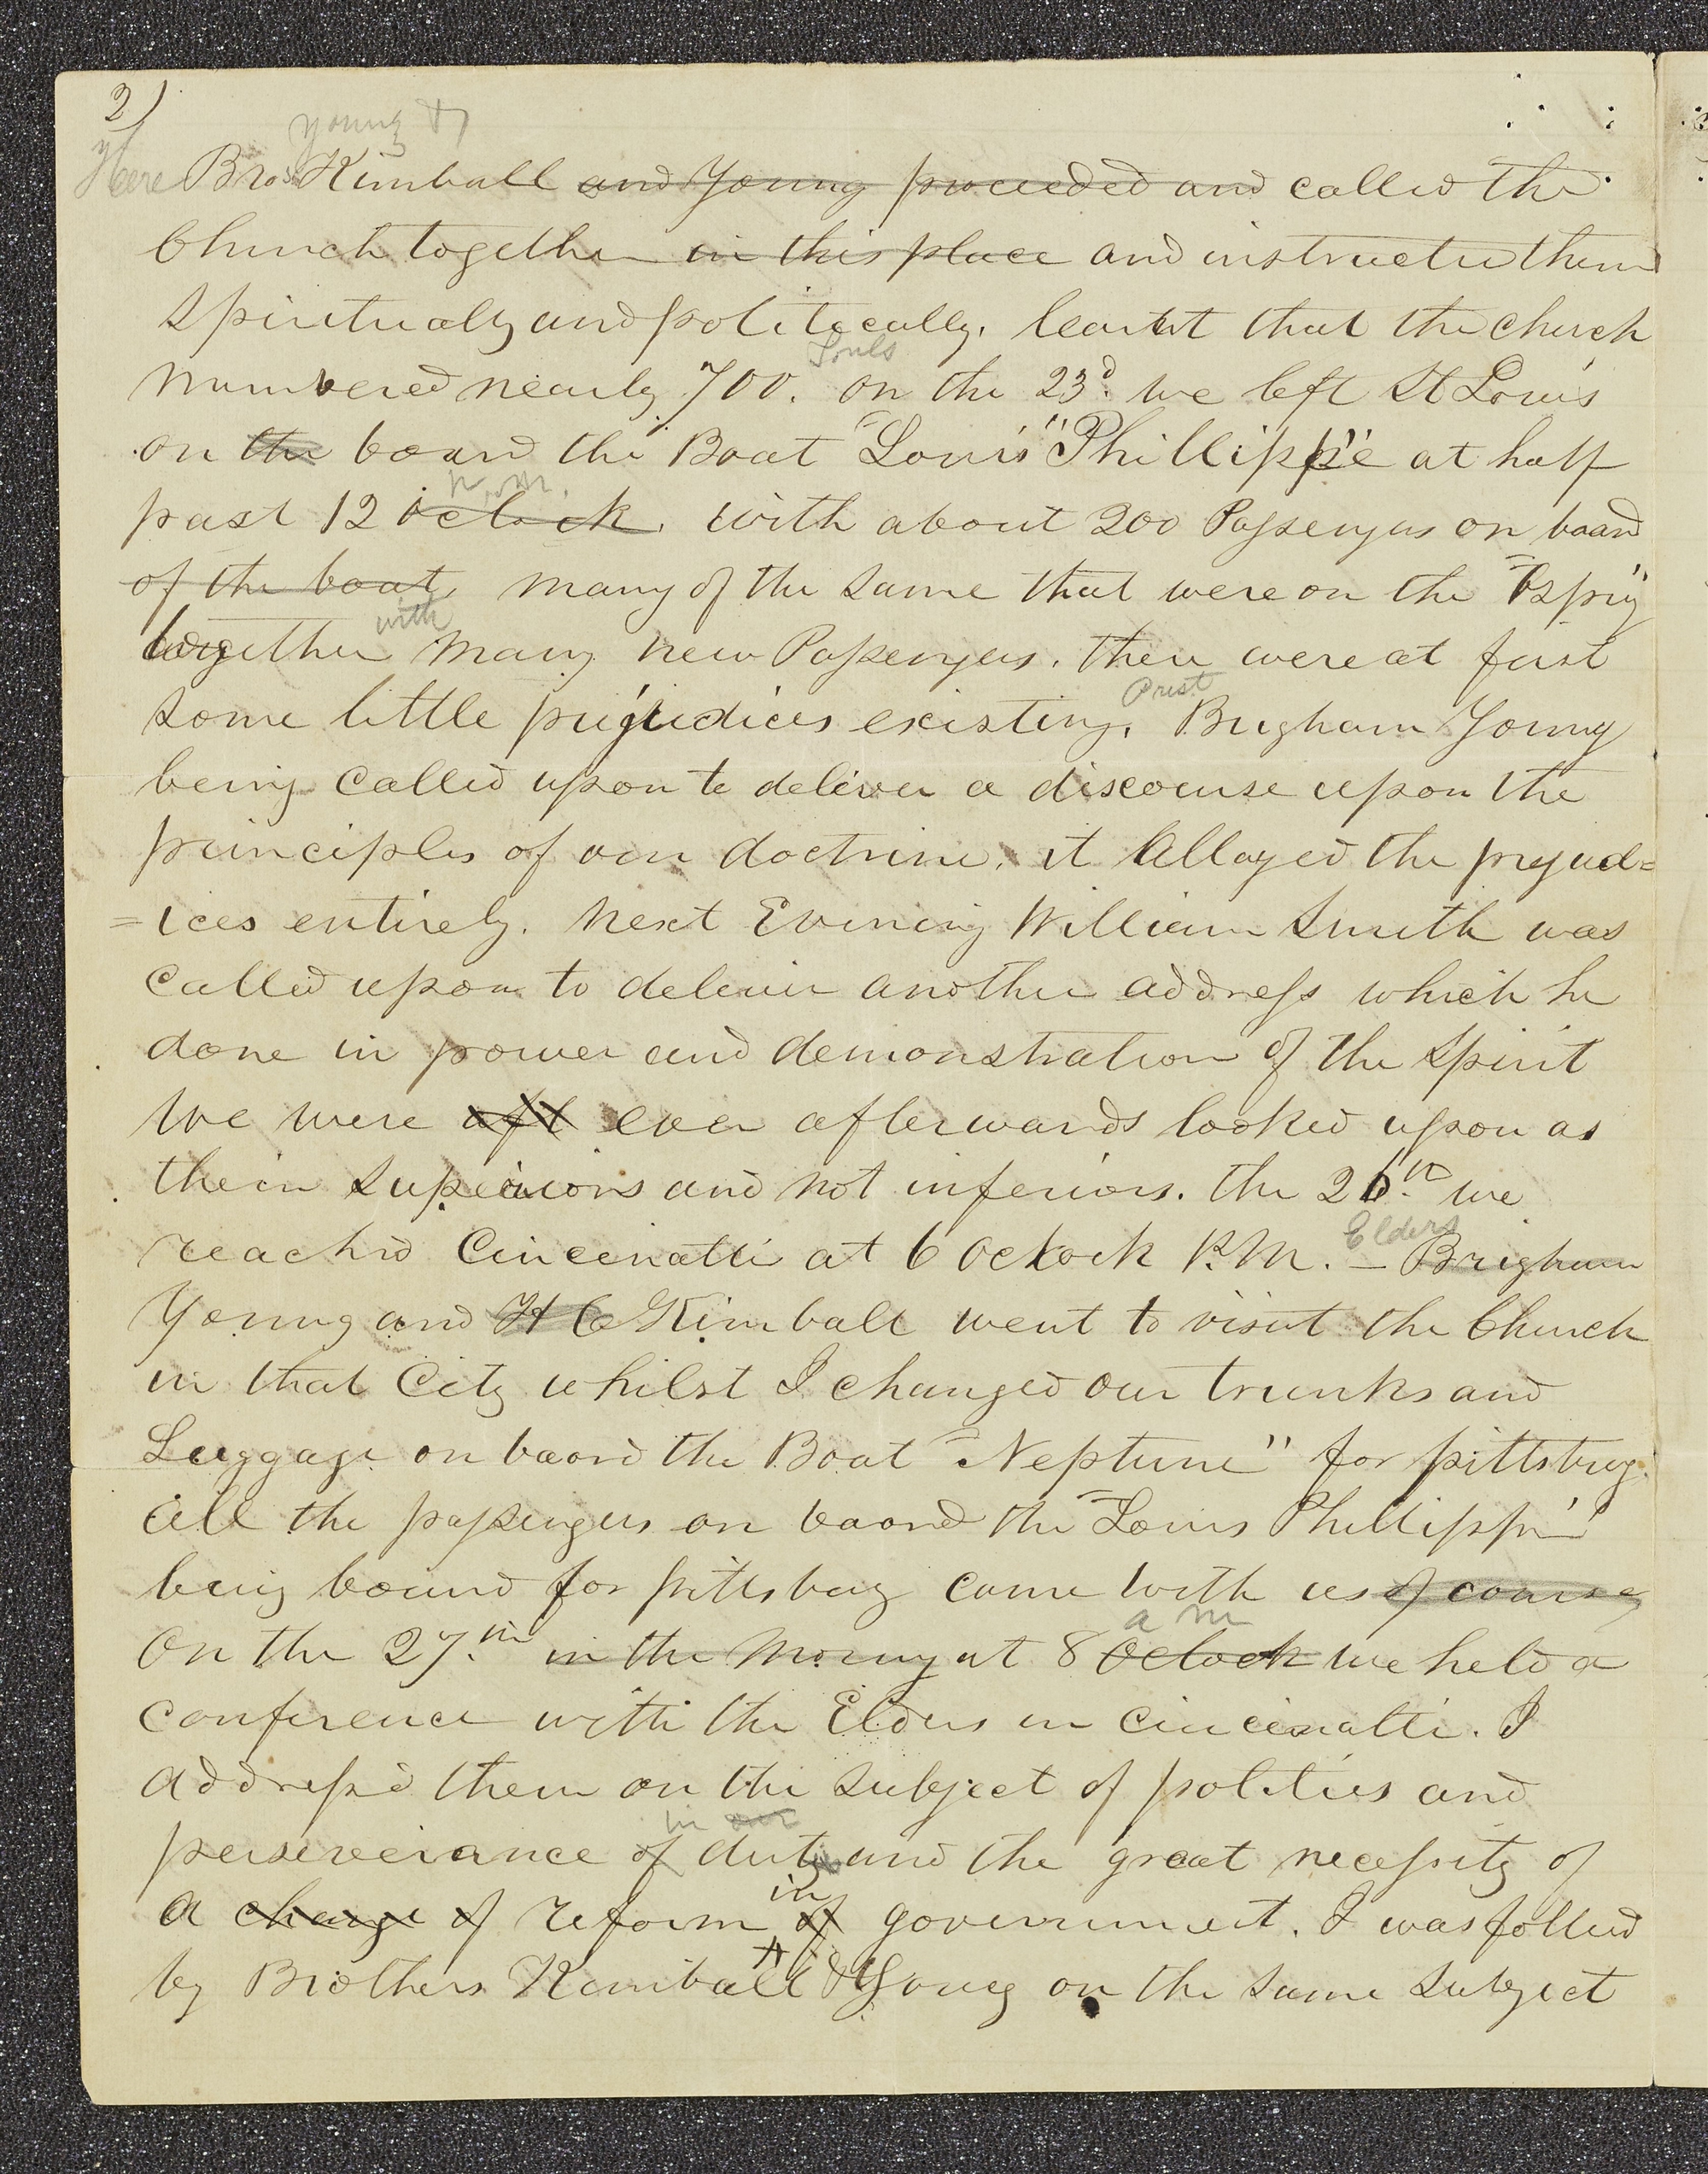 2)
Young &
Here Bros Kimball and Young proceeded and called the
Church together in this place and instructed them
Spiritualy and politically. learnt that the church
Souls
numbered nearly 700. on the 23d. we left St Louis
on the board the Boat "Louis Phillippe" at half
p. m.
past 12 oclock. with about 200 Passengers on board
of the boat, many of the same that were on the "Ospry"
with
together many new Passengers. there were at first
Prest
some little prejudices existing. Brigham Young
being called upon to deliver a discourse upon the
principles of our doctrine. it allayed the prejud=
=ices entirely. next Evening William Smith was
called upon to deliver another address which he
done in power and demonstration of the spirit
we were aft ever afterwards looked upon as
their superiors and not inferiors. the 26th we
Elders
reached Cincenatti at 6 Oclock P.M. - Brigham
Young and H C Kimball went to visit the Church
in that City whilst I changed our trunks and
Luggage on baord the Boat "Neptune" for pittsburg.
all the passengers on baord the "Louis Phillippe"
being bound for pittsburg came with us of course,
a m
On the 27th in the morning at 8 Oclock we held a
conference with the Elders in Cincenatti. I
addressed them on the subject of politics and
in our
perseverance of duty and the great necessity of
in
a change of reform of government. I was follwd
by Brothers Kimball & Young on the same subject